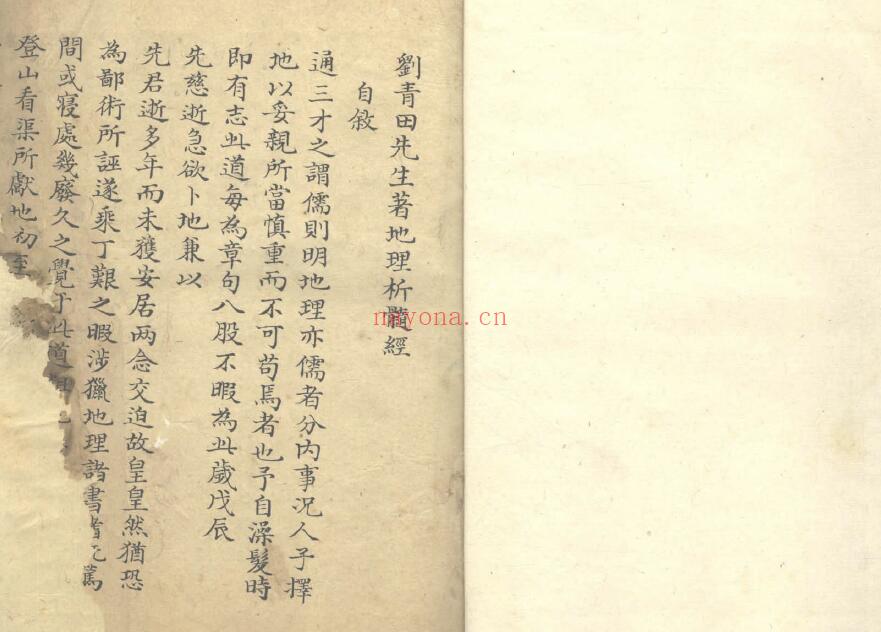 劉青田先生著地理析髓經
自敘
通三才之謂儒則明地理亦儒者分内事况人子擇
地以妥親所當慎重而不可苟焉者也予自澡髮時
即有志此道每為章句八股不暇為此歲戊辰
先慈逝急欲卜地兼以
先君逝多年而未獲安居两念交迫故皇皇然猶恐
為鄙術所誣遂乘丁艱之暇涉獵地理諸書
間或寝處幾廢久之覺于此道
登山看渠所獻地初至
miyona.cn